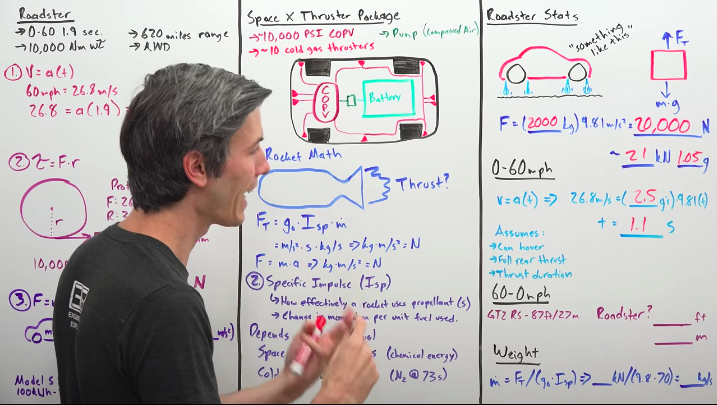 Roadster
→ 0-60 1.9 sec.
→ 10,000 Nm wt
→ 620 miles range
→ AWD
1. V = a(t)
60mph = 26.8 m/s
26.8 = a(1.9)
2 τ = F·r
r
10,00
3 F =
Model S
100kWh-
Space X Thruster Package
→ ~10,000 PSI COPV
→ ~10 cold gas thrusters
→ Pump (Compressed Air)
COPV
Battery
Rocket Math
Thrust?
F_T = g₀·Isp·ṁ
= m/s²·s·kg/s ⇒ kg·m/s² = N
F = m·a ⇒ kg·m/s² = N
2. Specific Impulse (Isp)
↳ How effectively a rocket uses propellant (s)
↳ Change in per unit fuel used.
Depends
Space (chemical energy)
Cold (N₂ @ 73s)
Roadster Stats
"something like this"
F_T
m·g
F = (2000 kg) 9.81 m/s² = 20,000 N
~ 21 kN 1.05 g
0-60mph
v = a(t) ⇒ 26.8 m/s = (2.5 g's)·9.81(t)
t = 1.1 s
Assumes:
→ Can hover
→ Full rear thrust
→ Thrust duration
60-0mph
GT2 RS - 87ft/27m Roadster? ___ ft
___ m
Weight
ṁ = F_T/(g₀·Isp) ⇒ __kN/(9.8·70) = __ kg/s